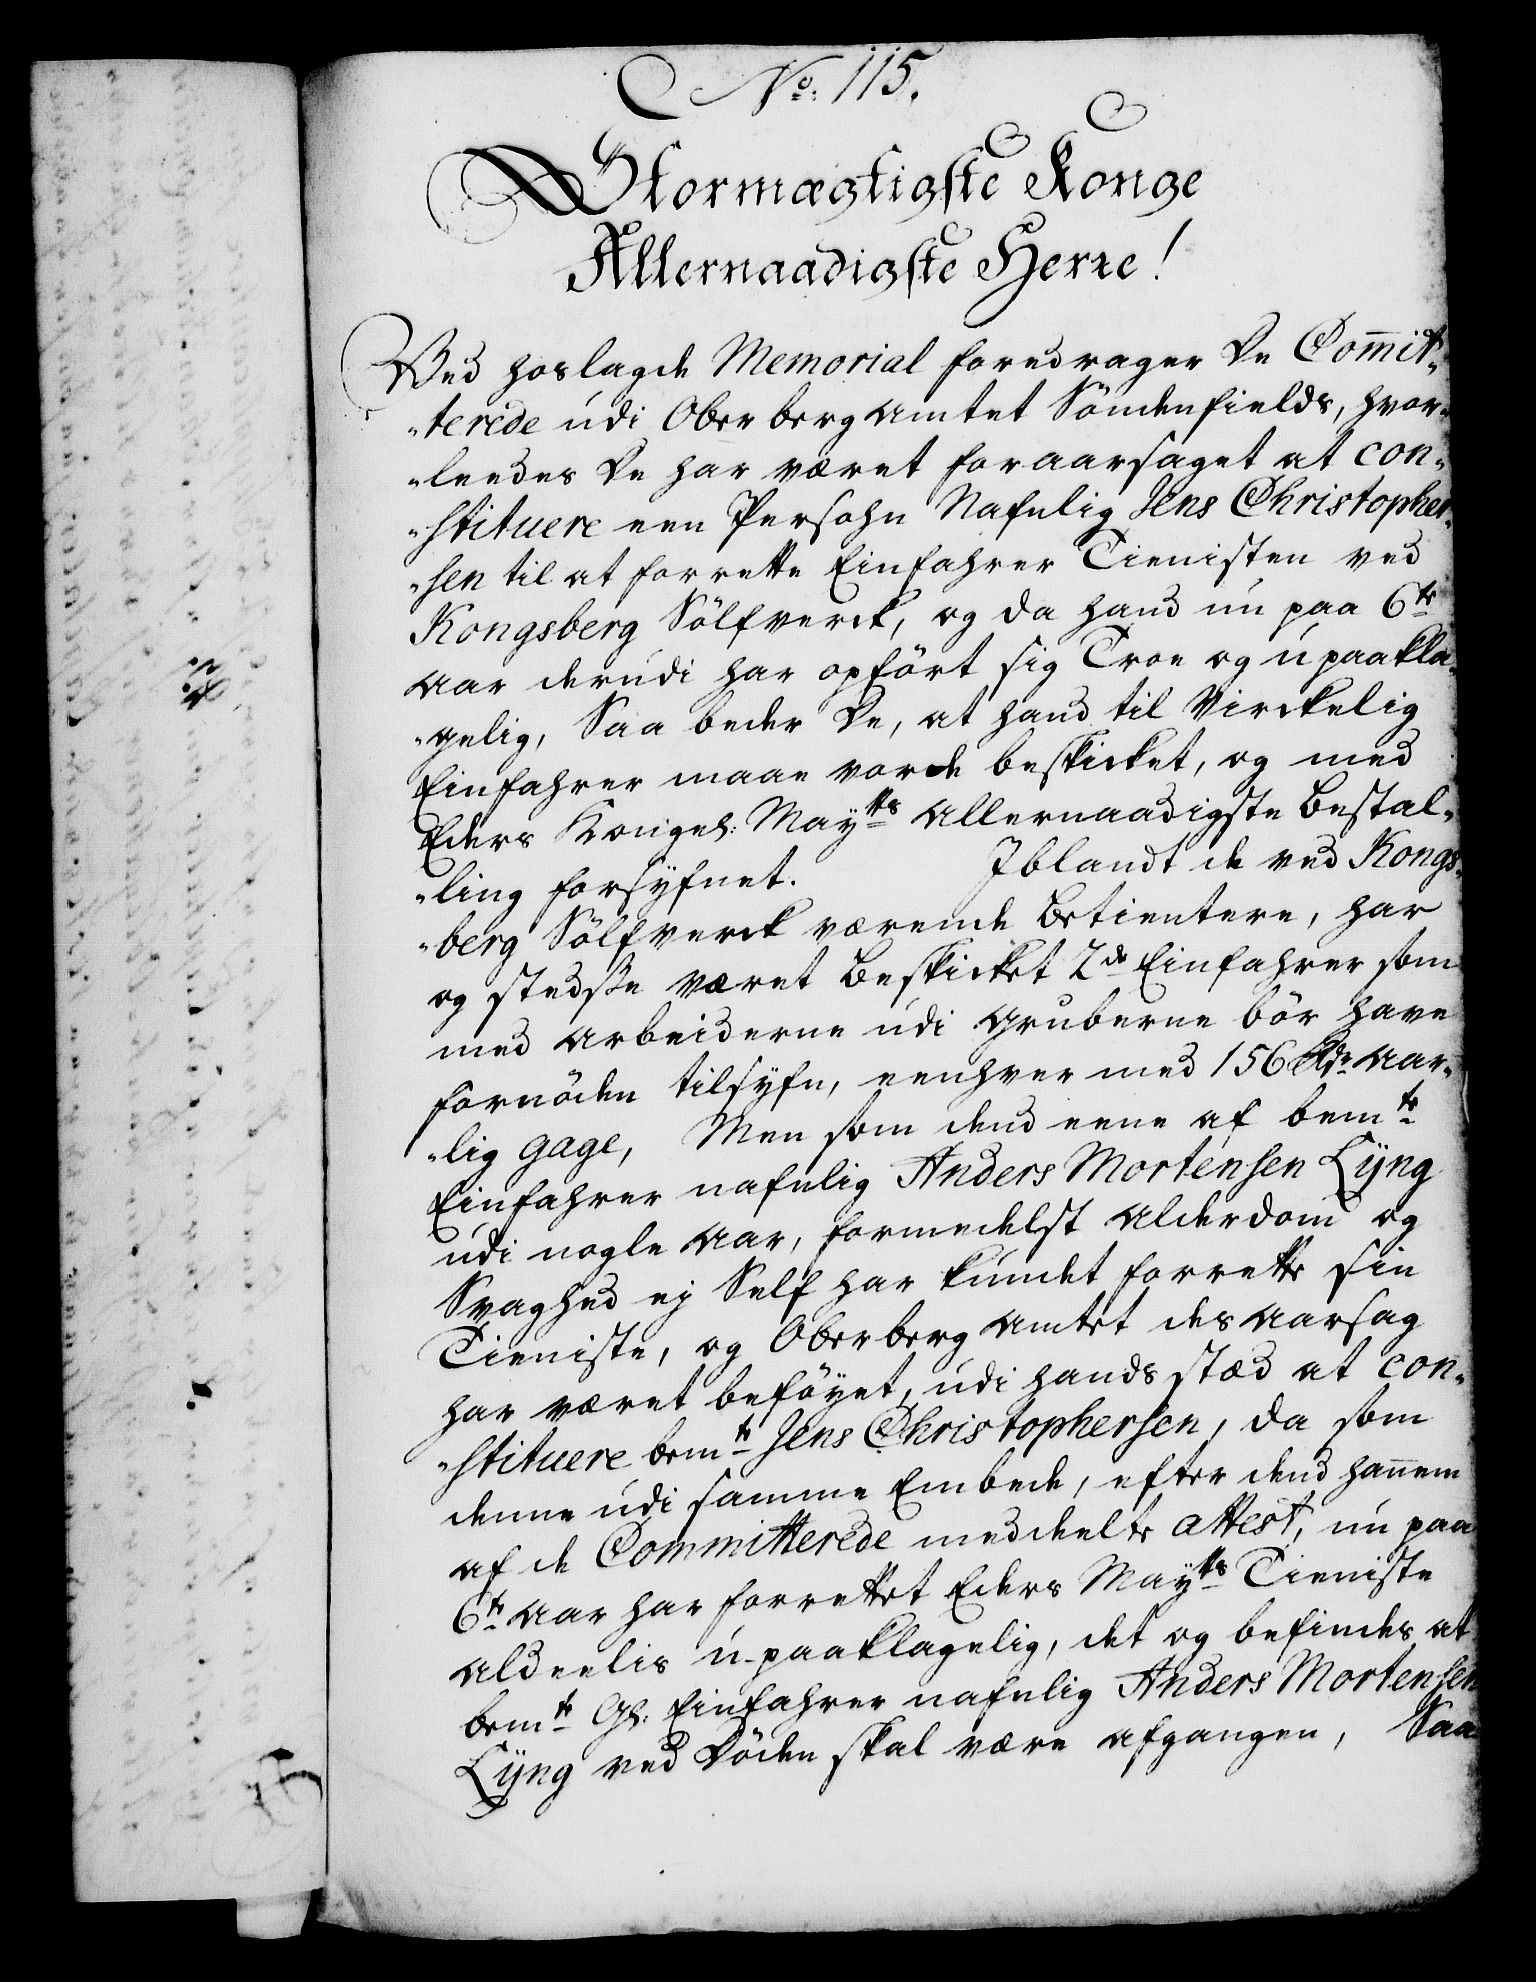 No. 115.
Stormægtigste Konge
Allernaadigste Herre!
Ved hoslagde Memorial foredrager De Com̄it-
-terede udi Oberbergamtet Söndenfields, hvor-
-leedes De har været foraarsaget at con-
-stituere een Persohn Nafnlig Jens Christopher-
-sen til at forrette Einfahrer Tienisten ved
Kongsberg Sölfverck, og da hand nu paa 6te
Aar derudi har opfört sig Troe og upaakla-
-gelig, Saa beder De, at hand til Virckelig
Einfahrer maae vorde beskicket, og med
Eders Kongel: Maytts Allernaadigste Bestal-
-ling forsÿfnet. Iblandt de ved Kongs-
-berg Sölfverck værende Betientere, har
og stedsse været Beskicket 2de Einfahrer som
med Arbeiderne udi Gruberne bör have
fornöden tilsÿfn, eenhver med 156 Rdr Aar-
-lig gage, Men som dend eene af bemte
Einfahrer nafnlig Anders Mortensen Lÿng
udi nogle Aar, formedelst Alderdom og
Svaghed ej Self har kundet forrette sin
Tieniste, og Oberbergamtet des Aarsag
har været beföyet, udi hands stæd at con-
-stituere bemte Jens Christophersen, da som
denne udi samme Embede, efter dend han̄em
af de Committerede meddeelte attest, nu paa
6te Aar har forrettet Eders Maytts Tieniste
Aldeelis u-paaklagelig, det og befindes at
bemte Gl: Einfahrer nafnlig Anders Mortensen
Lÿng ved Döden skal være afgangen, Saa